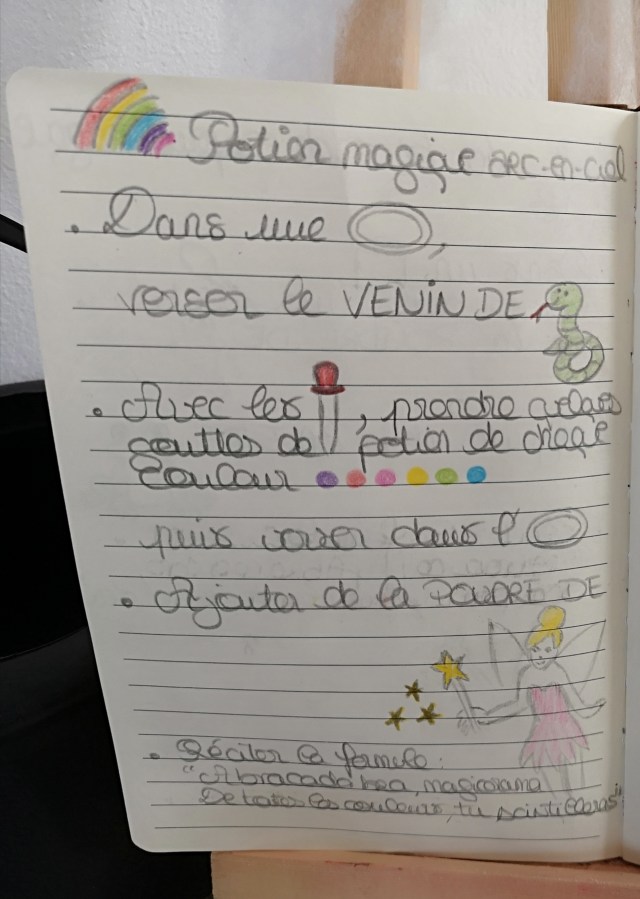 Potion magique ARC-en-ciel
• Dans une ,
verser le VENIN DE
• Avec les , prendre quelques
gouttes de potion de chaque
couleur
puis verser dans l'
• Ajouter de la POUDRE DE
• Réciter la formule :
"Abracadabra, magicorama
De toutes les couleurs, tu scintilleras"